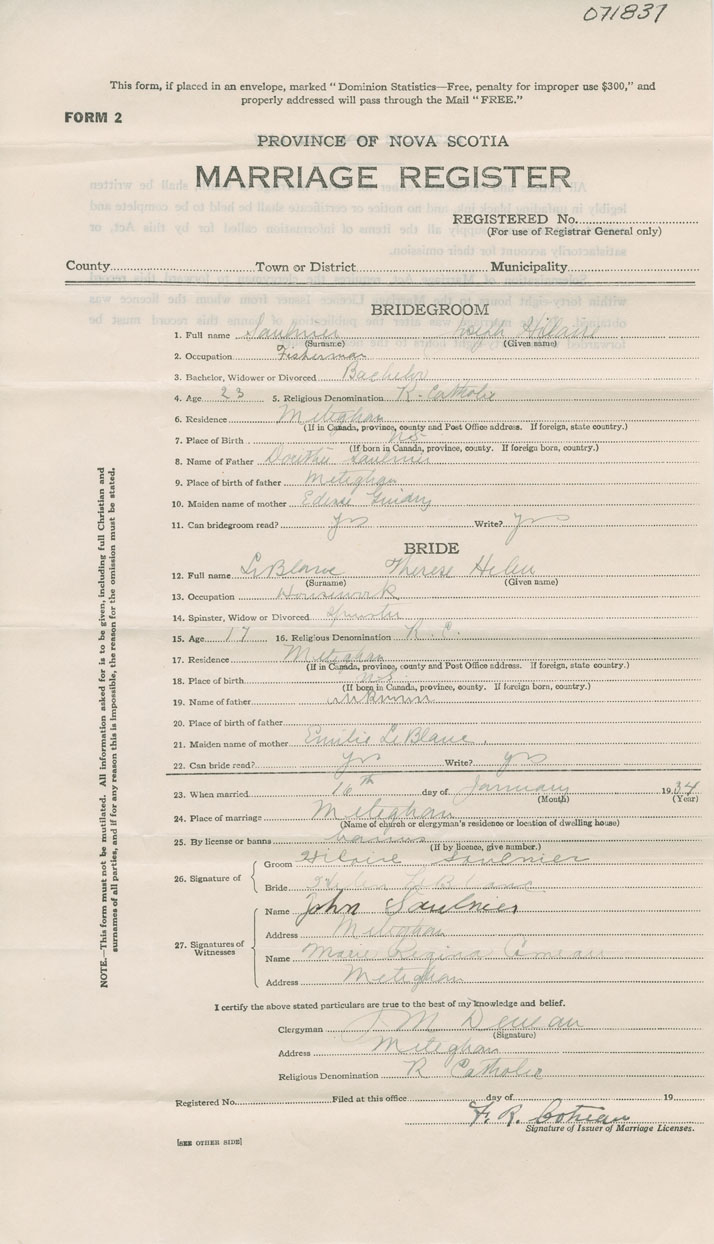 071837
This form, if placed in an envelope, marked "Dominion Statistics—Free, penalty for improper use $300," and
properly addressed will pass through the Mail "FREE."
FORM 2
PROVINCE OF NOVA SCOTIA
MARRIAGE REGISTER
REGISTERED No.
(For use of Registrar General only)
County Town or District Municipality
BRIDEGROOM
1. Full name Saulnier Hilaire
(Surname) (Given name)
2. Occupation Fisherman
3. Bachelor, Widower or Divorced Bachelor
4. Age 23 5. Religious Denomination R. Catholic
6. Residence Meteghan
(If in Canada, province, county and Post Office address. If foreign, state country.)
7. Place of Birth N.S.
(If born in Canada, province, county. If foreign born, country.)
8. Name of Father Saulnier
9. Place of birth of father Meteghan
10. Maiden name of mother
11. Can bridegroom read? yes Write? yes
BRIDE
12. Full name LeBlanc Therese Helen
(Surname) (Given name)
13. Occupation Housework
14. Spinster, Widow or Divorced Spinster
15. Age 17 16. Religious Denomination R. C.
17. Residence Meteghan
(If in Canada, province, county and Post Office address. If foreign, state country.)
18. Place of birth N.S.
(If born in Canada, province, county. If foreign born, country.)
19. Name of father unknown
20. Place of birth of father
21. Maiden name of mother Emilie LeBlanc.
22. Can bride read? yes Write? yes
23. When married 16th day of January 1934
(Month) (Year)
24. Place of marriage Meteghan
(Name of church or clergyman's residence or location of dwelling house)
25. By license or banns banns
(If by licence, give number.)
26. Signature of
Groom Hilaire Saulnier
Bride LeBlanc
27. Signatures of Witnesses
Name John Saulnier
Address Meteghan
Name Marie Regina Comeau
Address Meteghan
I certify the above stated particulars are true to the best of my knowledge and belief.
Clergyman
(Signature)
Address Meteghan
Religious Denomination R Catholic
Registered No. Filed at this office day of 19
F. R.
Signature of Issuer of Marriage Licenses.
[SEE OTHER SIDE]
NOTE.—This form must not be mutilated. All information asked for is to be given, including full Christian and
surnames of all parties, and if for any reason this is impossible, the reason for the omission must be stated.